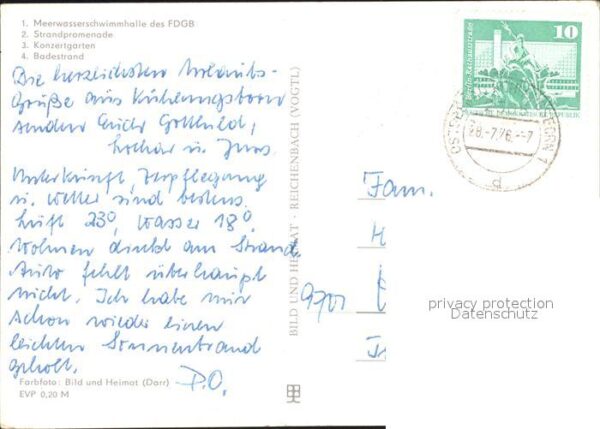 1. Meerwasserschwimmhalle des FDGB
2. Strandpromenade
3. Konzertgarten
4. Badestrand
Die herzlichsten Urlaubs-
Grüße aus Kühlungsborn
senden Euch Gotthild,
Lothar u. Jens
Unterkunft, Verpflegung
u. Wetter sind bestens.
Luft 23°, Wasser 18°.
Wohnen direkt am Strand
Auto fehlt überhaupt
nicht. Ich habe mir
schon wieder einen
leichten Sonnenbrand
geholt.
Farbfoto: Bild und Heimat (Darr)
EVP 0,20 M
P.O.
BILD UND HEIMAT · REICHENBACH (VOGTL)
10
-7.76.-7
Fam.
H
9701
privacy protection
Datenschutz